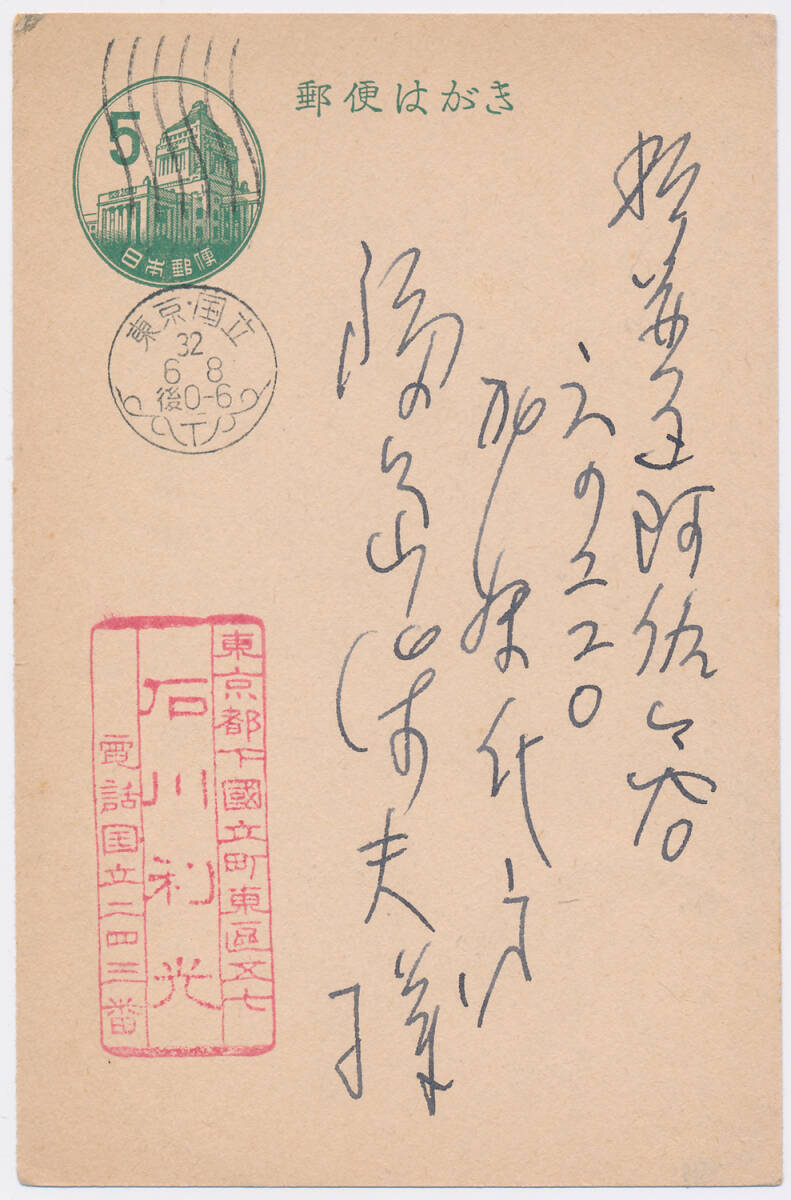 郵便はがき
5
日本郵便
東京・国立
32
6 8
後0-6
杉並区阿佐ヶ谷
六の二二〇
加藤代方
様
東京都下國立町東區五七
石川利光
電話国立二四三番